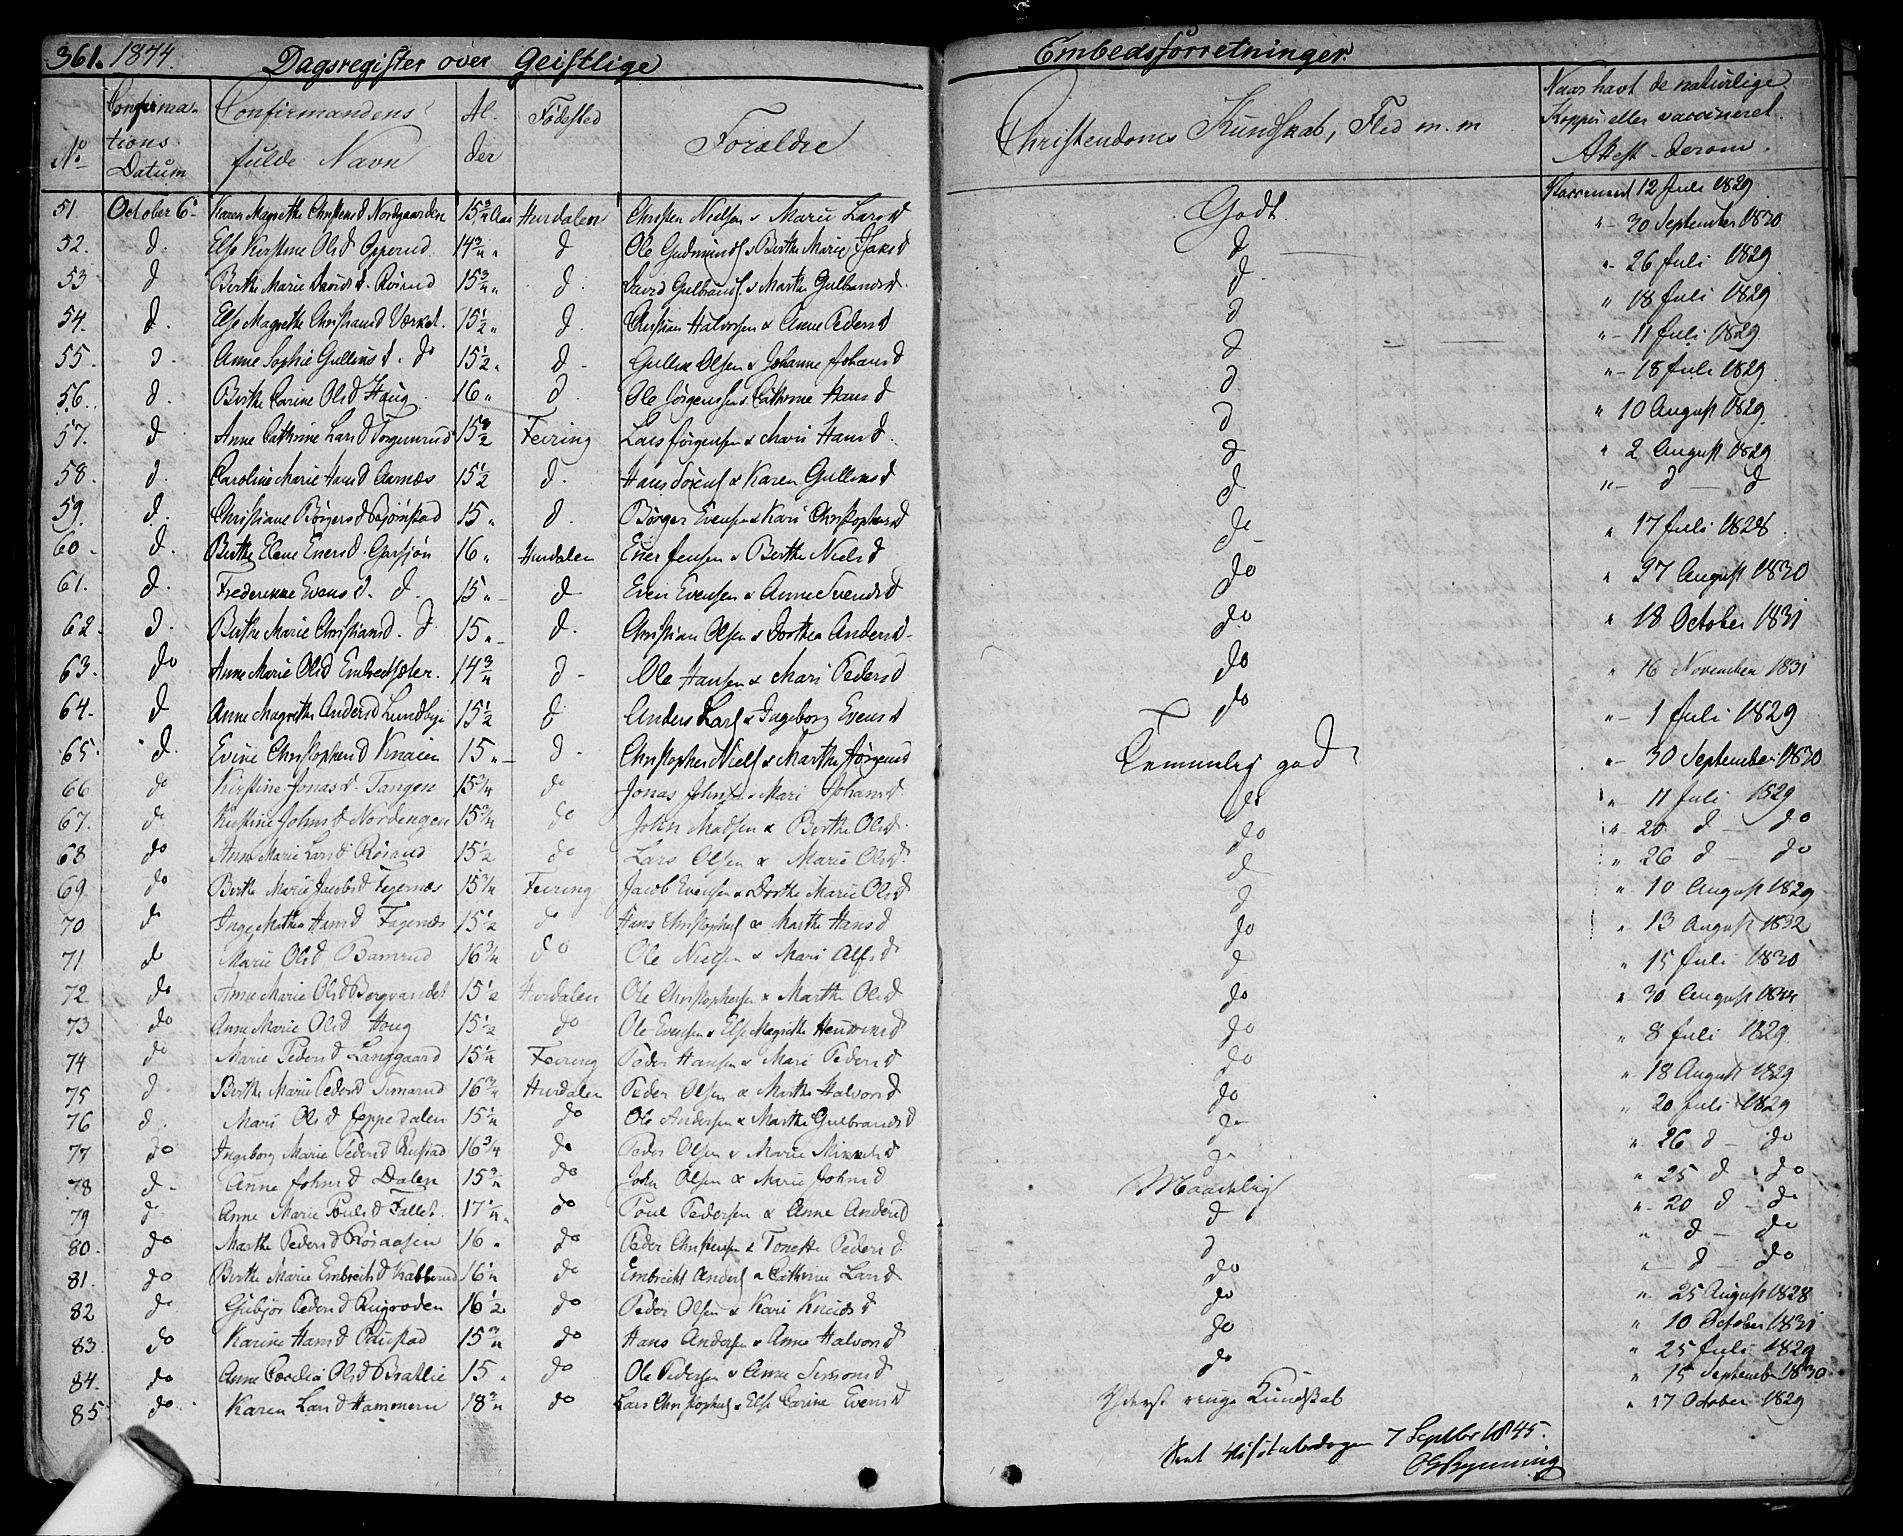 361. 1844. Dagsregister over Geistlige Embedsforretninger.
No Confirmations Datum Confirmandens fulde Navn Alder Fødested Forældre Christendoms Kundskab, Flid m.m Naar havt de naturlige Kopper eller vaccineret. Attest derom.
51. October 6. Karen Magrethe Christensd Nordgaarden 15 3/4 Aar Hurdalen Christen Nielsen & Marie Larsd Godt. Vaccineret 12 Juli 1829.
52. d. Else Kirstine Olsd 14 3/4 " d Ole Gudmunds. & Berthe Marie Jaksd d " 30 September 1830
53 d Berthe Marie Davidsd. Røisud 15 3/4 " d. David Gulbrands. & Marthe Gulbrandsd. d " 26 Juli 1829
54. d. Else Magrethe Christiansd Værket. 15 1/2 " d. Christian Halvorsen & Anne Pedersd d " 18 Juli 1829
55. d. Anne Sophie Gullensd. do 15 1/2 " d Gullen Olsen & Johanne Johansd d " 11 Juli 1829
56. d. Berthe Carine Olsd Haug 16 " d. Ole Jørgensen & Cathrine Hansd d " 18 Juli 1829
57. d Anne Cathrine Larsd Torgunrud 15 1/2 Feiring Lars Jørgensen & Mari Hansd. d " 10 August 1829
58. d. Caroline Marie Hansd Aarnæs 15 1/2 d. Hans Sørens & Karen Gullensd d " 2 August 1829
59. d. Christiane Børgersd Bjørnstad 15 " d. Børger Evensen & Kari Christophersd d " d d
60. d. Berthe Elene Enersd. Garsjøn 16 " Hurdalen Ener Jensen & Berthe Nielsd do " 17 Juli 1828
61. d. Frederikke Evensd. d 15 " d Even Evensen & Anne Svendsd do " 27 August 1830
62. d. Berthe Marie Christiansd. d. 15 " d. Christian Olsen & Dorthea Andersd. do " 18 October 1831
63. do Anne Marie Olsd Embretsæter. 14 3/4 d Ole Hansen & Mari Pedersd do " 16 November 1831
64. d Anne Magrethe Andersd Lundbye 15 1/2 d Anders Lars & Ingeborg Evensd do " 1 Juli 1829
65. d. Evine Christophersd Knaien 15 " d Christopher Niels & Marthe Jørgensd Temmelig god " 30 September 1830
66 do Kirstine Jonasd. Tangen 15 3/4 do Jonas Johnsen & Mari Johansd do " 11 Juli 1829
67. do Kirstine Johnsd Nordengen 15 3/4 do John Madsen & Berthe Olsd. do " 20 d do
68 do Anne Marie Larsd Røisud 15 1/2 do Lars Olsen & Marie Olsd. d " 26 d do
69. do Berthe Marie Jacobsd Fagernæs 15 3/4 Feiring Jacob Evensen & Dorthe Marie Olsd d " 10 August 1829
70 do Inge Mathea Hansd Fagernæs 15 1/2 d Hans Christophers & Marthe Hansd do " 13 August 1832
71 do Marie Olsd Bamrud 16 3/4 do Ole Nielsen & Mari Alfsd d " 15 Juli 1830
72 do Anne Marie Olsd Borgvandet 15 1/2 Hurdalen Ole Christophersen & Marthe Olsd do " 30 August
73 do Anne Marie Olsd Houg 15 1/2 do Ole Evensen & Else Magrethe Henningsd do " 8 Juli 1829
74 do Marie Pedersd Langgaard 15 1/4 Feiring Peder Hansen & Mari Pedersd do " 18 August 1829
75 d Berthe Marie Pedersd 16 3/4 Hurdalen Peder Olsen & Marthe Halvorsd do " 20 Juli 1829
76 d. Mari Olsd Jeppedalen 15 1/4 do Ole Andersen & Marthe Gulbrandsd do " 26 d do
77 do Ingeborg Marie Pedersd Rustad 16 3/4 do Peder Olsen & Marie Mikkelsd d " 25 d do
78 d Anne Johnsd Dalen 15 3/4 do John Olsen & Marie Johnsd Maadelig " 20 d do
79 d Anne Marie Poulsd Fallet. 17 1/4 " do Poul Pedersen & Anne Andersd d " d do
80. do Marthe Pedersd Røsaasen 16 " do Peder Christensen & Tonette Pedersd d " d do
81. do Berthe Marie Embrechtsd Kabberud 16 1/4 do Embrecht Anders & Cathrine Larsd do " 25 August 1828
82 do Gubjør Pedersd Rugroden 16 1/2 do Peder Olsen & Kari Knudsd do " 10 October 1831
83. do Karine Hansd Paustad 15 3/4 do Hans Andersen & Anne Halvorsd do " 25 Juli 1829
84. do Anne Cecilia Olsd Brattlie 15 " do Ole Pedersen & Anne Simonsd do " 15 September 1830
85 do Karen Larsd Hammeren 18 3/4 do Lars Christophers & Else Carine Evensd Yderst ringe Kundskab " 17 October 1829
7 Septbr 1845.